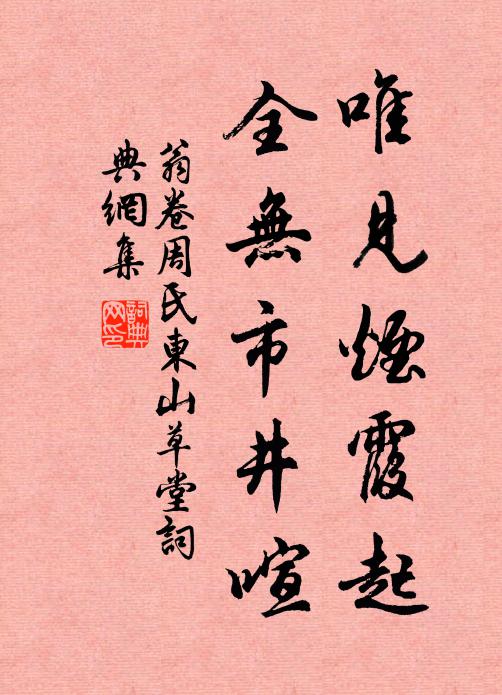 唯見煙霞起
全無市井喧
翁卷周氏東山草堂詞
典網集
詞典
网印